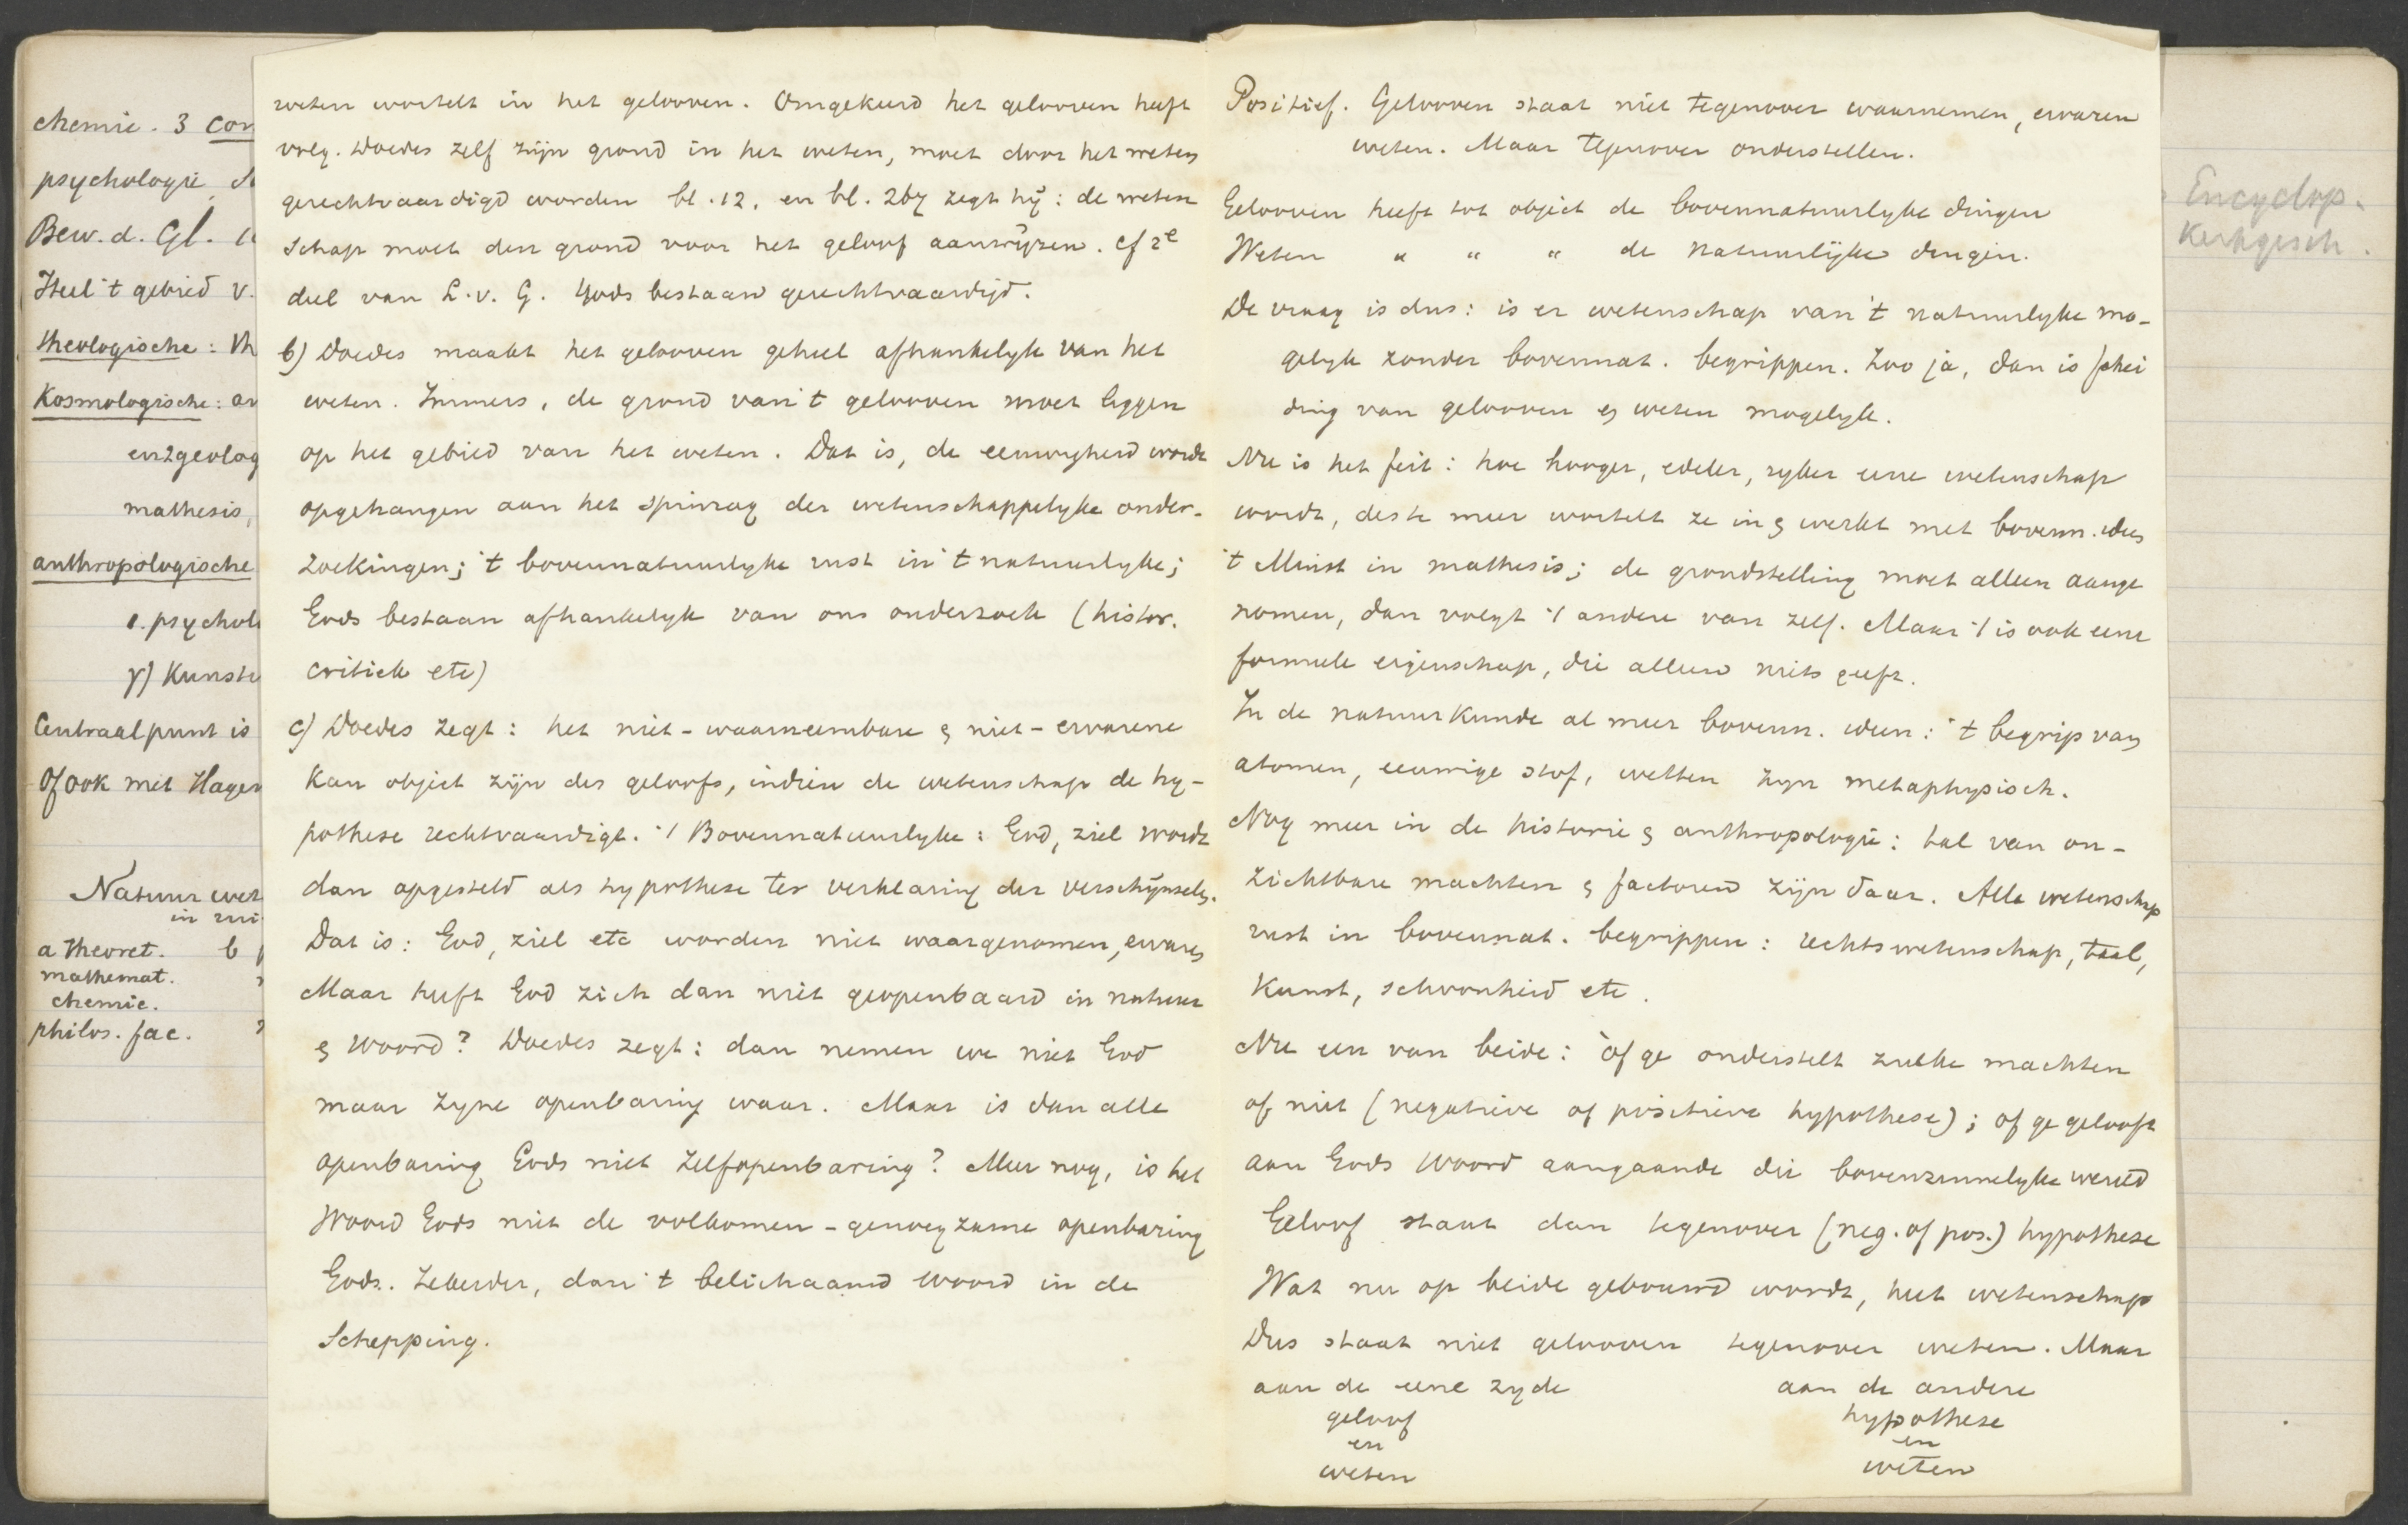 chemie. 3 con
psychologie,
Bew. d. Gl.
Heel 't gebied v.
theologische: th
Kosmologische: an
en geolog
mathesis,
anthropologische
1. psychol
γ) Kunste
Centraalpunt is
Of ook met Hagen
Natuur wet
in
a theoret. b
mathemat.
chemie.
philos. fac.
weten wortelt in het gelooven. Omgekeerd het gelooven heeft
volg. Doedes zelf zijn grond in het weten, moet door het weten
gerechtvaardigd worden bl. 12, en bl. 267 zegt hij: de weten
schap moet den grond voor het geloof aanwijzen. Cf 2e
deel van L. v. G. Gods bestaan gerechtvaardigd.
b) Doedes maakt het gelooven geheel afhankelyk van het
weten. Immers, de grond van 't gelooven moet liggen
op het gebied van het weten. Dat is, de eeuwigheid wordt
opgehangen aan het spinrag der wetenschappelyke onder-
zoekingen; 't bovennatuurlyke rust in 't natuurlyke;
Gods bestaan afhankelyk van ons onderzoek (histor.
critiek etc)
c) Doedes zegt: het niet-waarneembare & niet-ervarene
kan object zijn des geloofs, indien de wetenschap de hy-
pothese rechtvaardigt. 't Bovennatuurlyke: God, ziel wordt
dan opgesteld als hypothese ter verklaring der verschijnselen.
Dat is: God, ziel etc worden niet waargenomen, ervaren
Maar heeft God zich dan niet geopenbaard in natuur
& Woord? Doedes zegt: dan nemen we niet God
maar zyne openbaring waar. Maar is dan alle
openbaring Gods niet zelfopenbaring? Meer nog, is het
Woord Gods niet de volkomen-genoegzame openbaring
Gods. Zekerder, dan 't belichaamd woord in de
Schepping.
Positief. Gelooven staat niet tegenover waarnemen, ervaren
weten. Maar tegenover onderstellen.
Gelooven heeft tot object de bovennatuurlyke dingen
Weten " " " de natuurlijke dingen.
De vraag is dus: is er wetenschap van 't natuurlyke mo-
gelyk zonder bovennat. begrippen. Zoo ja, dan is schei
ding van gelooven & weten mogelyk.
Nu is het feit: hoe hooger, edeler, ryker eene wetenschap
wordt, deste meer wortelt ze in & werkt met bovenn. ideen
't Minst in mathesis; de grondstelling moet alleen aange
nomen, dan volgt 't andere van zelf. Maar 't is ook eene
formeele eigenschap, die alleen niets geeft.
In de natuurkunde al meer bovenn. ideen: 't begrip van
atomen, eeuwige stof, wetten zyn metaphysisch.
Nog meer in de historie & anthropologie: tal van on-
zichtbare machten & factoren zijn daar. Alle wetenschap
rust in bovennat. begrippen: rechtswetenschap, taal,
Kunst, schoonheid etc.
Nu een van beide: òf ge onderstelt zulke machten
of niet (negatieve of positieve hypothese); of ge gelooft
aan Gods Woord aangaande die bovenzinnelyke wereld
Geloof staat dan tegenover (neg. of pos.) hypothese
Wat nu op beide gebouwd wordt, heet wetenschap
Dus staat niet gelooven tegenover weten. Maar
aan de eene zyde aan de andere
geloof hypothese
en en
weten weten
Encyclop.
Kerkgesch.